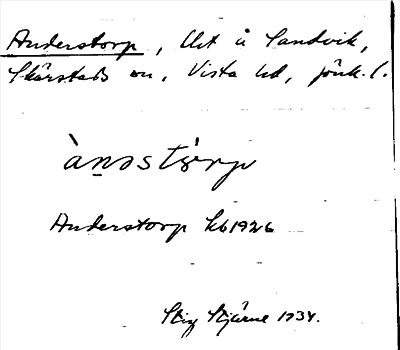 Anderstorp, Utt å Sandvik,
Skärstads sn, Vista hd, Jönk. l.
ànəstòrp
Anderstorp kb 1926
Stig Stjärne 1934.